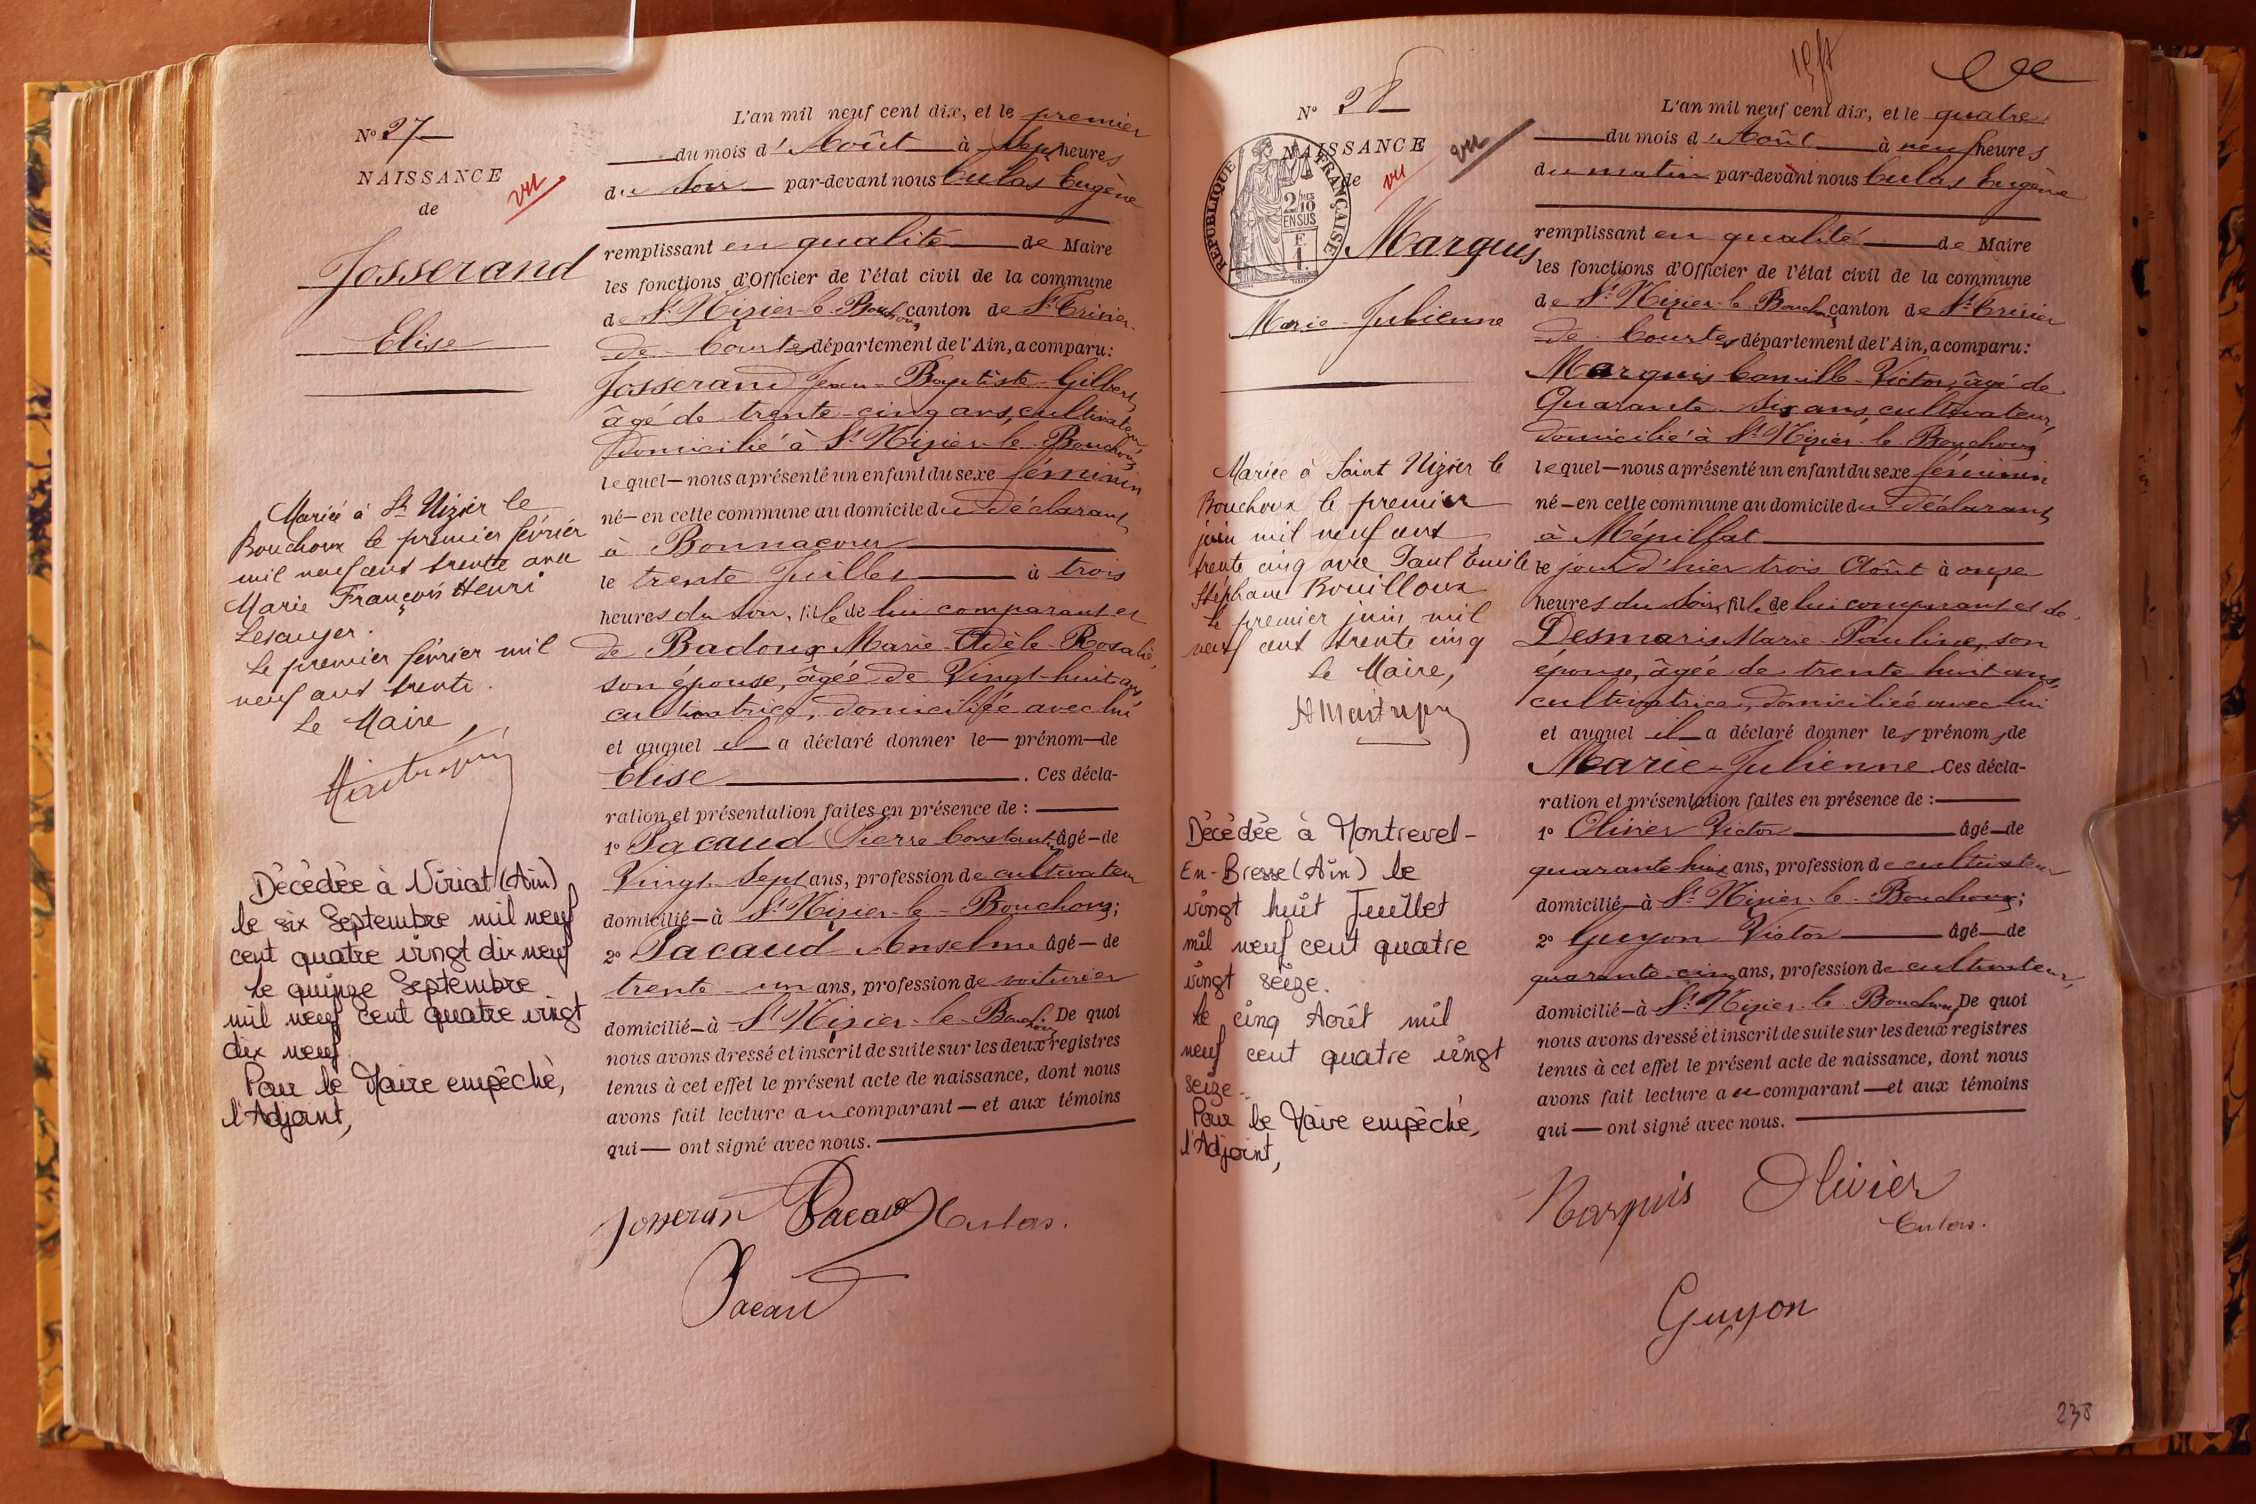 N° 27
NAISSANCE
de
vu
Josserand
Elise
Mariée à St Nizier le
Bouchoux le premier février
mil neuf cent trente avec
Marie François Henri
Lescuyer.
Le premier février mil
neuf cent trente.
Le Maire,
Décédée à Viriat (Ain)
le six Septembre mil neuf
cent quatre vingt dix neuf
le quinze Septembre
mil neuf cent quatre vingt
dix neuf
Pour le Maire empêché,
l'Adjoint,
L'an mil neuf cent dix, et le premier
du mois d'Août à sept heures
du soir par-devant nous Culas Eugène
remplissant en qualité de Maire
les fonctions d'Officier de l'état civil de la commune
de St Nizier-le-Bouchoux canton de St Trivier-
de-Courtes département de l'Ain, a comparu:
Josserand Jean-Baptiste-Gilbert,
âgé de trente-cinq ans, cultivateur,
domicilié à St Nizier-le-Bouchoux
lequel—nous a présenté un enfant du sexe féminin
né—en cette commune au domicile du déclarant
à Bonnacour
le trente Juillet à trois
heures du soir, fille de lui comparant et
de Badoux Marie-Adèle-Rosalie,
son épouse, âgée de Vingt-huit ans,
cultivatrice, domiciliée avec lui
et auquel il a déclaré donner le— prénom—de
Elise . Ces décla-
ration et présentation faites en présence de :
1° Pacaud Pierre Constant, âgé—de
Vingt-sept ans, profession de cultivateur
domicilié—à St Nizier-le-Bouchoux;
2° Pacaud Anselme âgé—de
trente-un ans, profession de voiturier
domicilié—à St Nizier-le-Bouchoux De quoi
nous avons dressé et inscrit de suite sur les deux registres
tenus à cet effet le présent acte de naissance, dont nous
avons fait lecture au comparant—et aux témoins
qui— ont signé avec nous.
Josserand Pacaud Culas.
Pacaud
N° 28
NAISSANCE
de
vu
vu
RÉPUBLIQUE FRANÇAISE
2/10
EN SUS
Marquis
Marie-Julienne
Mariée à Saint Nizier le
Bouchoux le premier
juin mil neuf cent
trente cinq avec Paul Emile
Stéphane Bouilloux
Le premier juin mil
neuf cent trente cinq
Le Maire,
Décédée à Montrevel-
En-Bresse (Ain) le
vingt huit Juillet
mil neuf cent quatre
vingt seize.
Le cinq Août mil
neuf cent quatre vingt
seize.
Pour le Maire empêché,
l'Adjoint,
L'an mil neuf cent dix, et le quatre
du mois d'Août à neuf heures
du matin par-devant nous Culas Eugène
remplissant en qualité de Maire
les fonctions d'Officier de l'état civil de la commune
de St Nizier-le-Bouchoux canton de St Trivier
de-Courtes département de l'Ain, a comparu:
Marquis Camille-Victor, âgé de
Quarante-six ans, cultivateur,
domicilié à St Nizier-le-Bouchoux
lequel—nous a présenté un enfant du sexe féminin
né—en cette commune au domicile du déclarant
à Mépillat
le jour d'hier trois Août à onze
heures du soir, fille de lui comparant et de
Desmaris Marie-Pauline, son
épouse, âgée de trente huit ans,
cultivatrice, domiciliée avec lui
et auquel il a déclaré donner les prénoms de
Marie-Julienne. Ces décla-
ration et présentation faites en présence de :
1° Olivier Victor âgé—de
quarante huit ans, profession de cultivateur
domicilié—à St Nizier-le-Bouchoux;
2° Guyon Victor âgé—de
quarante-cinq ans, profession de cultivateur,
domicilié—à St Nizier-le-Bouchoux De quoi
nous avons dressé et inscrit de suite sur les deux registres
tenus à cet effet le présent acte de naissance, dont nous
avons fait lecture au comparant—et aux témoins
qui— ont signé avec nous.
Marquis Olivier
Culas.
Guyon
238